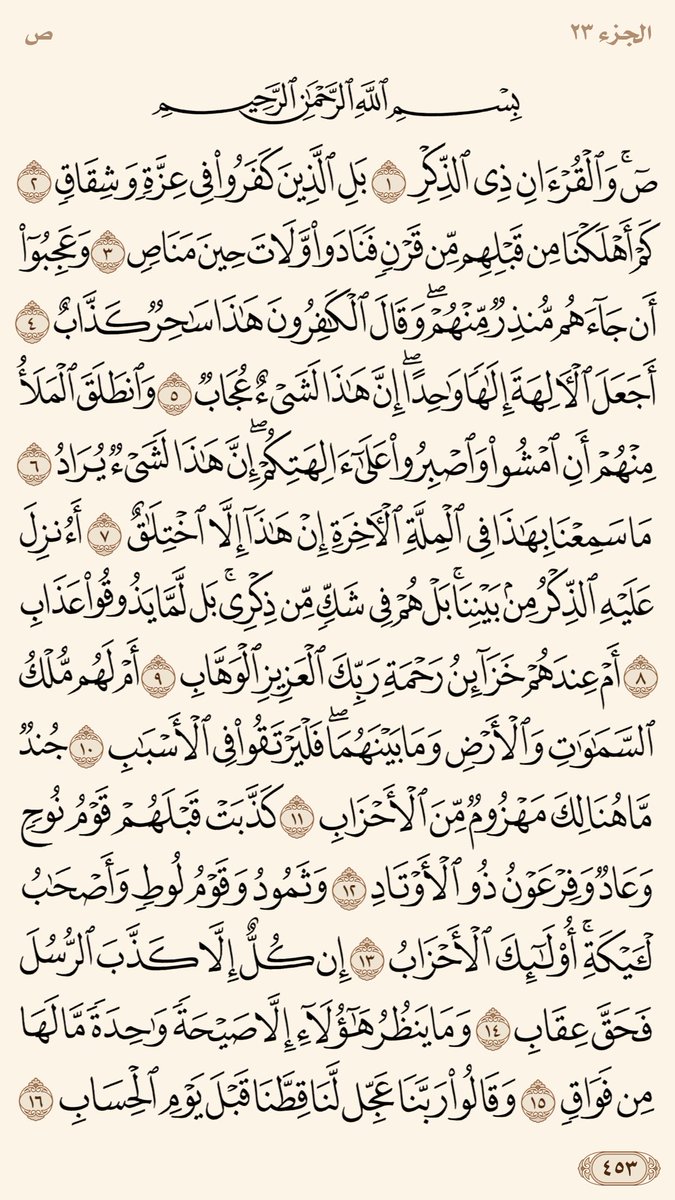 الجزء ٢٣
ص
بِسْمِ ٱللَّهِ ٱلرَّحْمَٰنِ ٱلرَّحِيمِ
صٓ ۚ وَٱلْقُرْءَانِ ذِى ٱلذِّكْرِ ١ بَلِ ٱلَّذِينَ كَفَرُوا۟ فِى عِزَّةٍ وَشِقَاقٍ ٢
كَمْ أَهْلَكْنَا مِن قَبْلِهِم مِّن قَرْنٍ فَنَادَوا۟ وَّلَاتَ حِينَ مَنَاصٍ ٣ وَعَجِبُوٓا۟
أَن جَآءَهُم مُّنذِرٌ مِّنْهُمْ ۖ وَقَالَ ٱلْكَٰفِرُونَ هَٰذَا سَٰحِرٌ كَذَّابٌ ٤
أَجَعَلَ ٱلْـَٔالِهَةَ إِلَٰهًا وَٰحِدًا ۖ إِنَّ هَٰذَا لَشَىْءٌ عُجَابٌ ٥ وَٱنطَلَقَ ٱلْمَلَأُ
مِنْهُمْ أَنِ ٱمْشُوا۟ وَٱصْبِرُوا۟ عَلَىٰٓ ءَالِهَتِكُمْ ۖ إِنَّ هَٰذَا لَشَىْءٌ يُرَادُ ٦
مَا سَمِعْنَا بِهَٰذَا فِى ٱلْمِلَّةِ ٱلْـَٔاخِرَةِ إِنْ هَٰذَآ إِلَّا ٱخْتِلَٰقٌ ٧ أَءُنزِلَ
عَلَيْهِ ٱلذِّكْرُ مِنۢ بَيْنِنَا ۚ بَلْ هُمْ فِى شَكٍّ مِّن ذِكْرِى ۚ بَل لَّمَّا يَذُوقُوا۟ عَذَابِ
٨ أَمْ عِندَهُمْ خَزَآئِنُ رَحْمَةِ رَبِّكَ ٱلْعَزِيزِ ٱلْوَهَّابِ ٩ أَمْ لَهُم مُّلْكُ
ٱلسَّمَٰوَٰتِ وَٱلْأَرْضِ وَمَا بَيْنَهُمَا ۖ فَلْيَرْتَقُوا۟ فِى ٱلْأَسْبَٰبِ ١٠ جُندٌ
مَّا هُنَالِكَ مَهْزُومٌ مِّنَ ٱلْأَحْزَابِ ١١ كَذَّبَتْ قَبْلَهُمْ قَوْمُ نُوحٍ
وَعَادٌ وَفِرْعَوْنُ ذُو ٱلْأَوْتَادِ ١٢ وَثَمُودُ وَقَوْمُ لُوطٍ وَأَصْحَٰبُ
لْـَٔيْكَةِ ۚ أُو۟لَٰٓئِكَ ٱلْأَحْزَابُ ١٣ إِن كُلٌّ إِلَّا كَذَّبَ ٱلرُّسُلَ
فَحَقَّ عِقَابِ ١٤ وَمَا يَنظُرُ هَٰٓؤُلَآءِ إِلَّا صَيْحَةً وَٰحِدَةً مَّا لَهَا
مِن فَوَاقٍ ١٥ وَقَالُوا۟ رَبَّنَا عَجِّل لَّنَا قِطَّنَا قَبْلَ يَوْمِ ٱلْحِسَابِ ١٦
٤٥٣